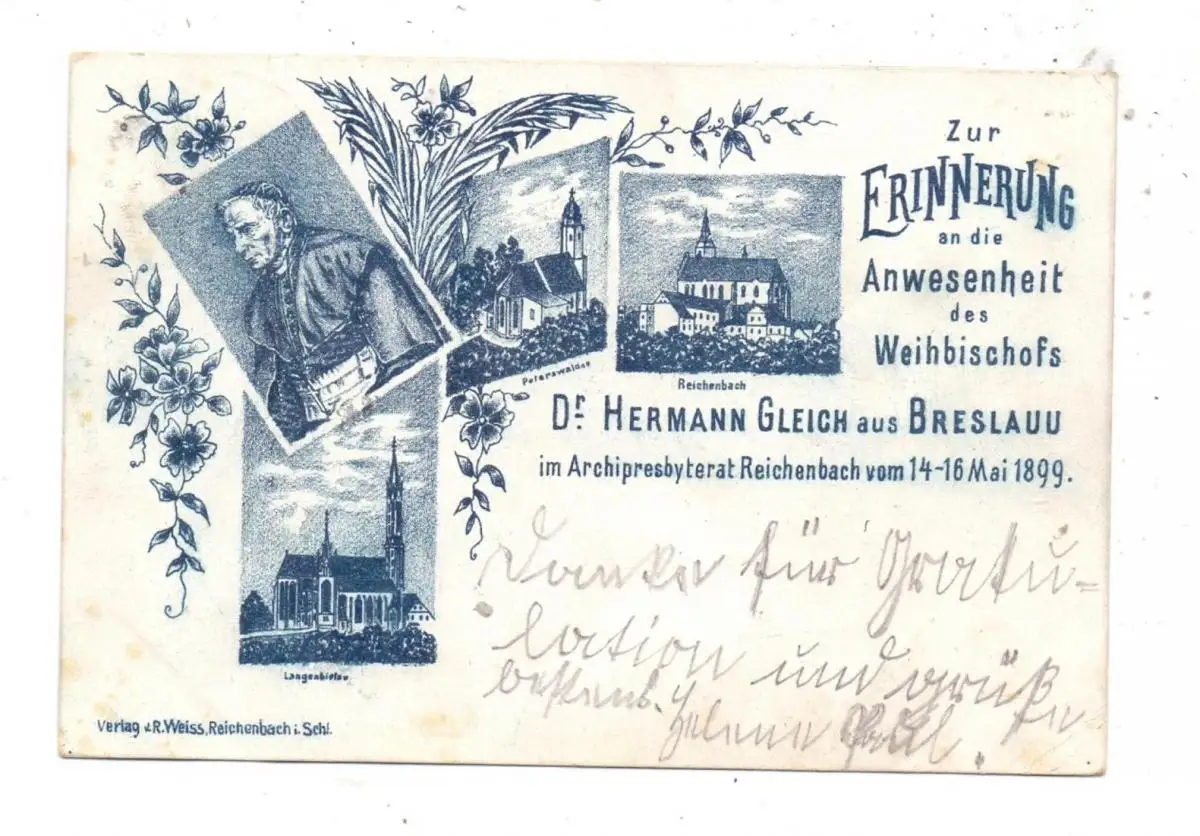 Zur
ERINNERUNG
an die
Anwesenheit
des
Weihbischofs
Dr. HERMANN GLEICH aus BRESLAUU
im Archipresbyterat Reichenbach vom 14-16 Mai 1899.
Peterswaldau
Reichenbach
Langenbielau
Danke für Gratu-
lation und grüße
bestens.
Helene
Verlag v. R. Weiss, Reichenbach i. Schl.